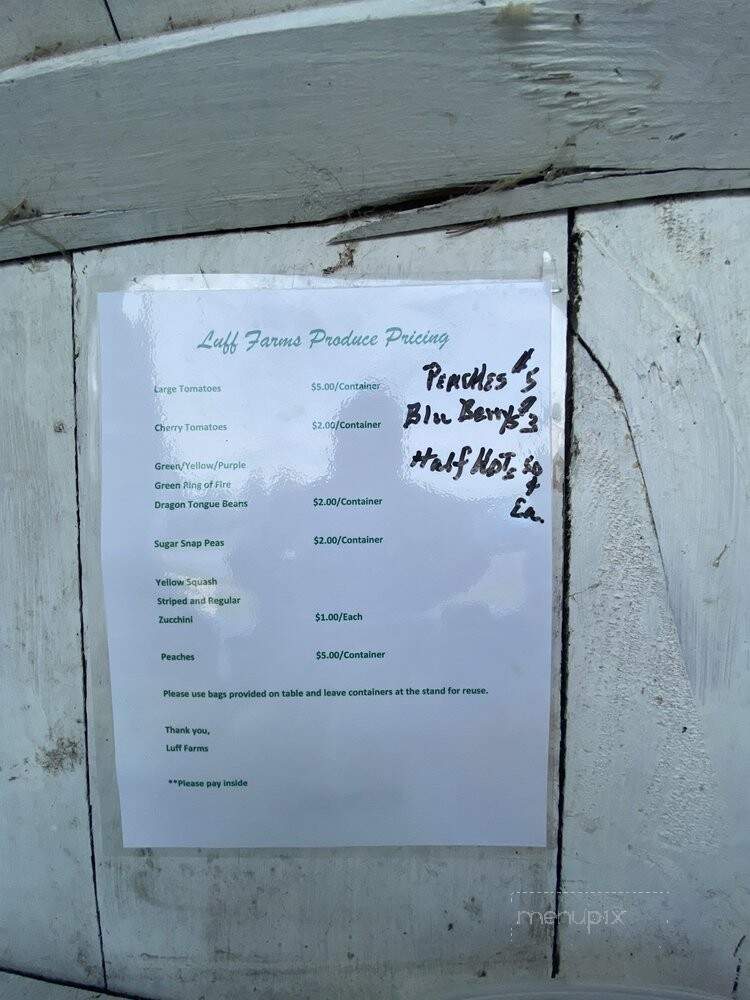 Luff Farms Produce Pricing
Large Tomatoes $5.00/Container
Cherry Tomatoes $2.00/Container
Green/Yellow/Purple
Green Ring of Fire
Dragon Tongue Beans $2.00/Container
Sugar Snap Peas $2.00/Container
Yellow Squash
Striped and Regular
Zucchini $1.00/Each
Peaches $5.00/Container
Please use bags provided on table and leave containers at the stand for reuse.
Thank you,
Luff Farms
**Please pay inside
PEACHES $5
Blu Berrys $3
Half HOTS
Ea.
menupix